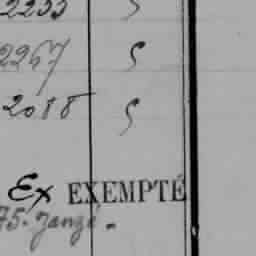 2233 5
2267 5
2088 5
Ex EXEMPTÉ
75. Janzé.